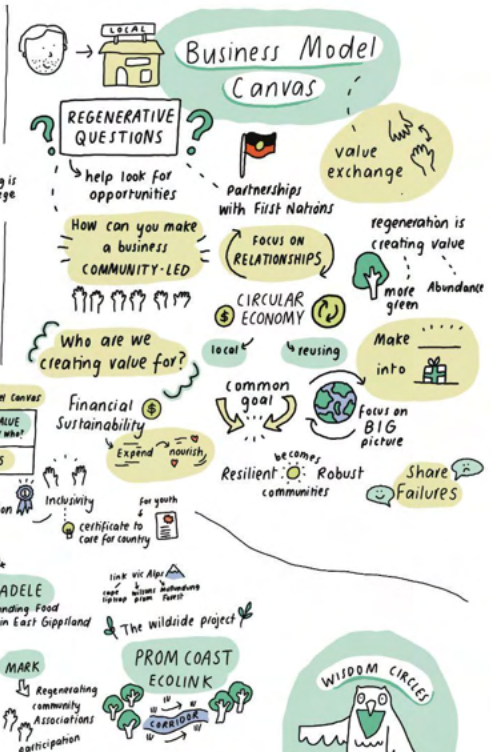 LOCAL
Business Model
Canvas
REGENERATIVE
QUESTIONS
? ?
help look for
opportunities
Partnerships
with First Nations
value
exchange
How can you make
a business
COMMUNITY-LED
FOCUS ON
RELATIONSHIPS
regeneration is
creating value
more
green
Abundance
CIRCULAR
ECONOMY
$
local
reusing
Who are we
creating value for?
Make
into
common
goal
Focus on
BIG
picture
Financial
Sustainability
$
Expend
nourish
becomes
Resilient
Robust
communities
Share
Failures
Canvas
ALUE
who?
S
on
Inclusivity
certificate to
care for country
for youth
ADELE
nding Food
in East Gippsland
link Vic Alps
cape
liptrap
wilsons
prom
Forest
The wildside project
MARK
Regenerating
community
Associations
participation
PROM COAST
ECOLINK
CORRIDOR
WISDOM CIRCLES
g is
ge